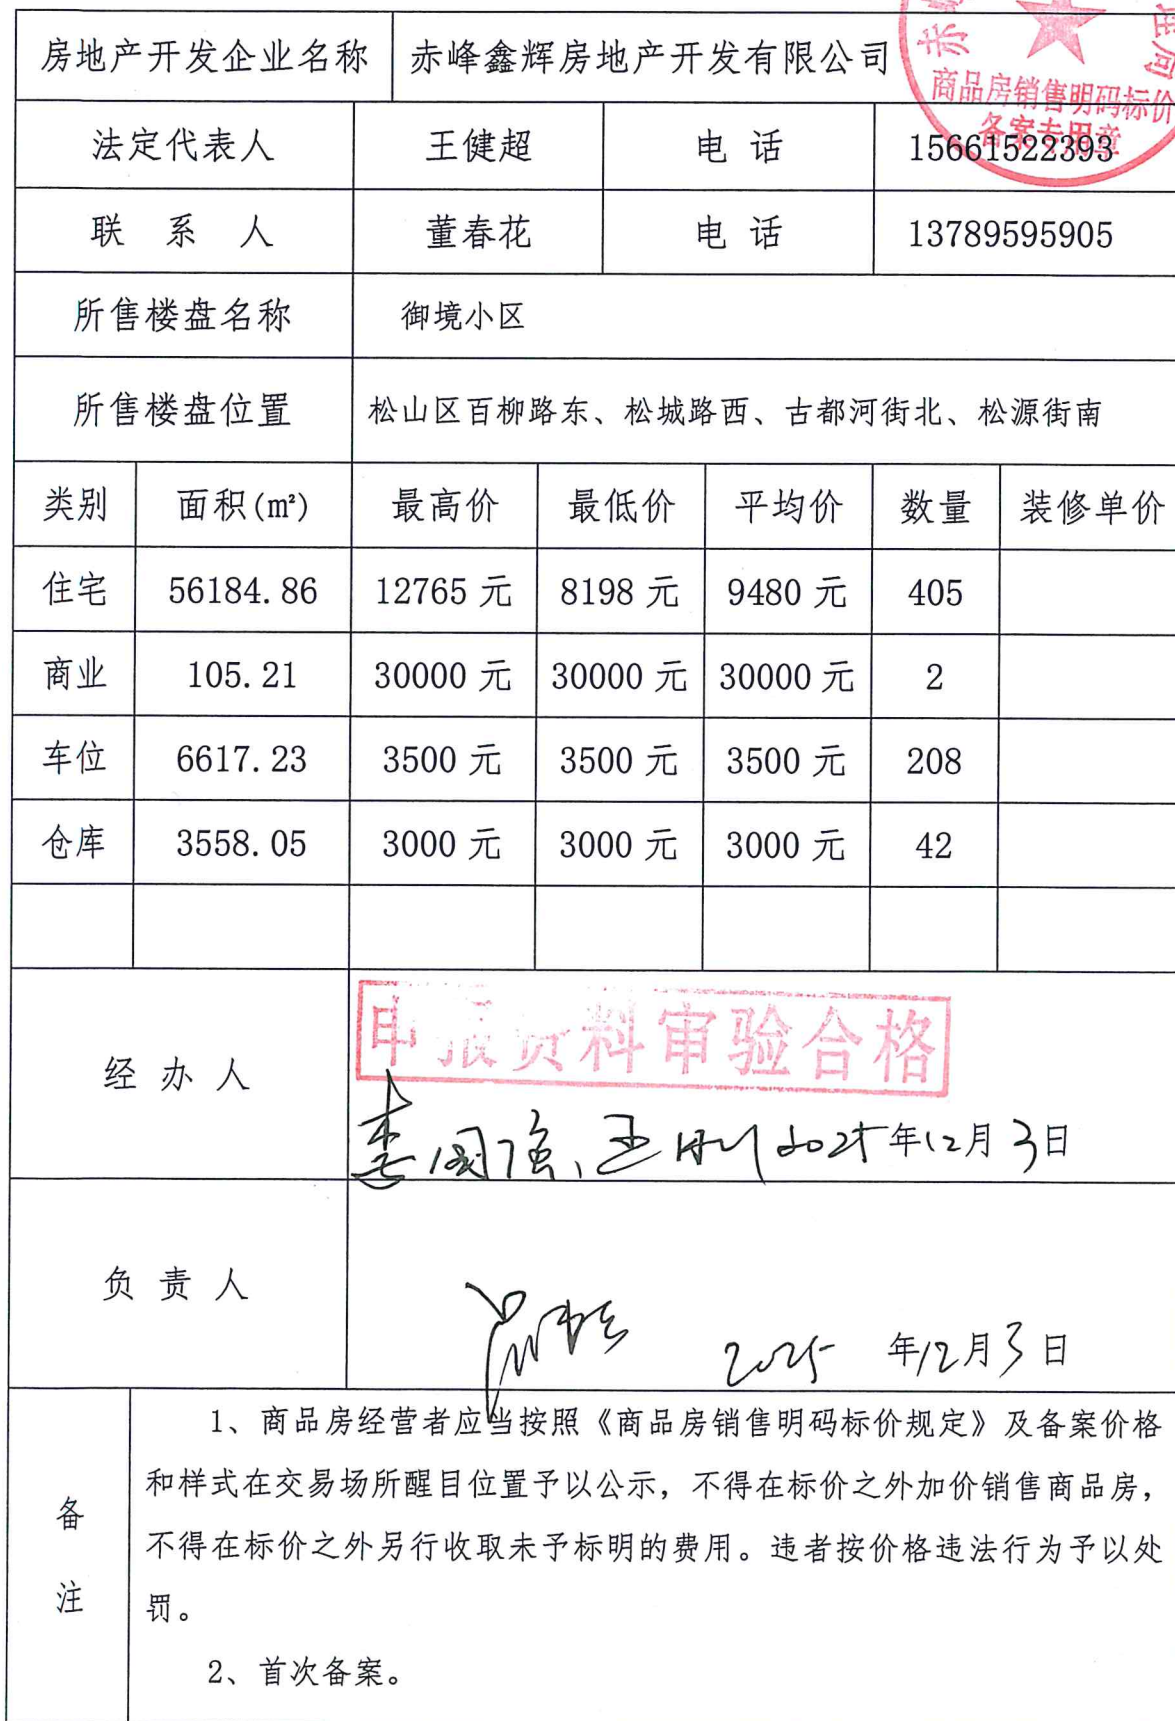 房地产开发企业名称 赤峰鑫辉房地产开发有限公司
商品房销售明码标价
备案专用章
法定代表人 王健超 电 话 15661522393
联 系 人 董春花 电 话 13789595905
所售楼盘名称 御境小区
所售楼盘位置 松山区百柳路东、松城路西、古都河街北、松源街南
类别 面积(㎡) 最高价 最低价 平均价 数量 装修单价
住宅 56184.86 12765 元 8198 元 9480 元 405
商业 105.21 30000 元 30000 元 30000 元 2
车位 6617.23 3500 元 3500 元 3500 元 208
仓库 3558.05 3000 元 3000 元 3000 元 42
申报资料审验合格
经 办 人 国强、王刚 2025年12月3日
负 责 人 2025 年12月3日
备注
1、商品房经营者应当按照《商品房销售明码标价规定》及备案价格
和样式在交易场所醒目位置予以公示，不得在标价之外加价销售商品房，
不得在标价之外另行收取未予标明的费用。违者按价格违法行为予以处
罚。
2、首次备案。